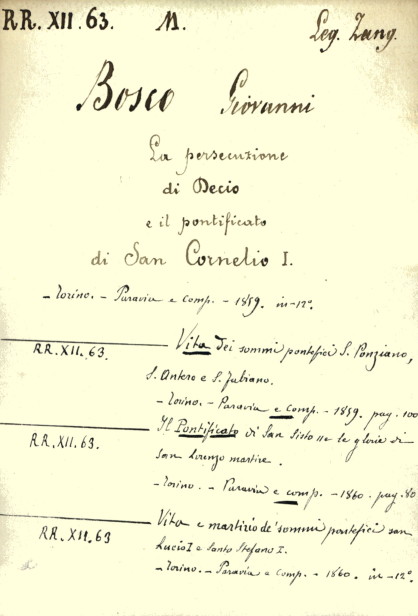 RR. XII. 63. M. Leg. Zang.
Bosco Giovanni
La persecuzione
di Decio
e il pontificato
di San Cornelio I.
- Torino. - Paravia e Comp. - 1859. in-12°.
RR. XII. 63. Vita dei sommi pontefici S. Ponziano,
S. Antero e S. Fabiano.
- Torino. - Paravia e Comp. - 1859. pag. 100
RR. XII. 63. Il Pontificato di San Sisto II e le glorie di
San Lorenzo martire.
- Torino. - Paravia e comp. - 1860. pag. 80
RR. XII. 63 Vita e martirio de' sommi pontefici san
Lucio I e Santo Stefano I.
- Torino. - Paravia e comp. - 1860. in-12°.